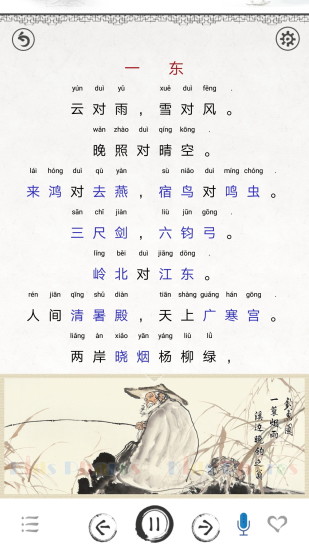 一 东
yún duì yǔ xuě duì fēng .
云 对 雨 ， 雪 对 风 。
wǎn zhào duì qíng kōng .
晚 照 对 晴 空 。
lái hóng duì qù yàn sù niǎo duì míng chóng .
来 鸿 对 去 燕 ， 宿 鸟 对 鸣 虫 。
sān chǐ jiàn liù jūn gōng .
三 尺 剑 ， 六 钧 弓 。
lǐng běi duì jiāng dōng .
岭 北 对 江 东 。
rén jiān qīng shǔ diàn tiān shàng guǎng hán gōng .
人 间 清 暑 殿 ， 天 上 广 寒 宫 。
liǎng àn xiǎo yān yáng liǔ lǜ
两 岸 晓 烟 杨 柳 绿 ，
一蓑烟雨